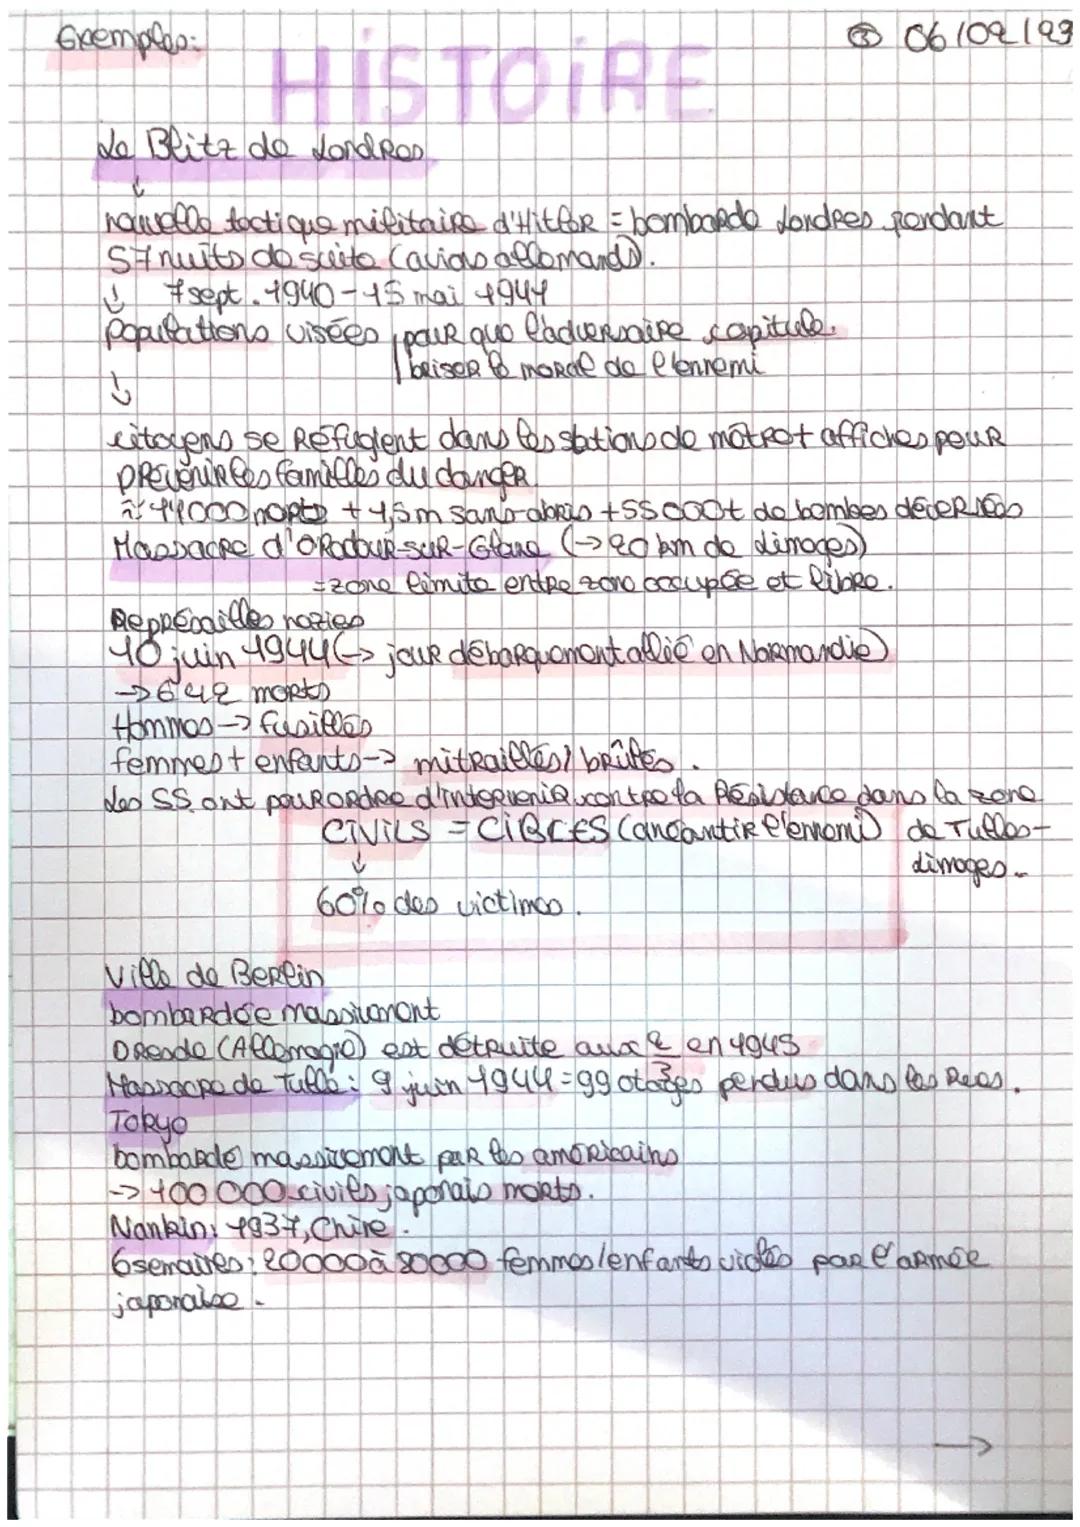 Exemples:
HISTOIRE
③ 06/02/23
Le Blitz de Londres
↓
nouvelle tactique militaire d'Hitler = bombarde Londres pendant
57 nuits de suite (avions allemands).
↓ 7 sept. 1940-15 mai 1941
populations visées pour que l'adversaire capitule.
briser le moral de l'ennemi
↓
citoyens se réfugient dans les stations de métro + affiches pour
prévenir les familles du danger.
≈ 44000 morts + 1,5m sans-abris + 55 000t de bombes déversées
Massacre d'Oradour-sur-Glane (→ 20 km de Limoges)
= zone limite entre zone occupée et libre.
Représailles nazies
10 juin 1944 (→ jour débarquement allié en Normandie)
→ 642 morts
Hommes → fusillés
femmes + enfants → mitraillés / brûlés.
Les SS ont pour ordre d'intervenir contre la Résistance dans la zone
de Tulles-
Limoges.
CIVILS = CIBLES (anéantir l'ennemi)
↓
60% des victimes.
Ville de Berlin
bombardée massivement
Dresde (Allemagne) est détruite aux 2/3 en 1945
Massacre de Tulle: 9 juin 1944 = 99 otages perdus dans les
Tokyo
bombardé massivement par les américains
→ 100 000 civils japonais morts.
Nankin: 1937, Chine.
6 semaines: 20000 à 80000 femmes/enfants violés par l'armée
japonaise.
→